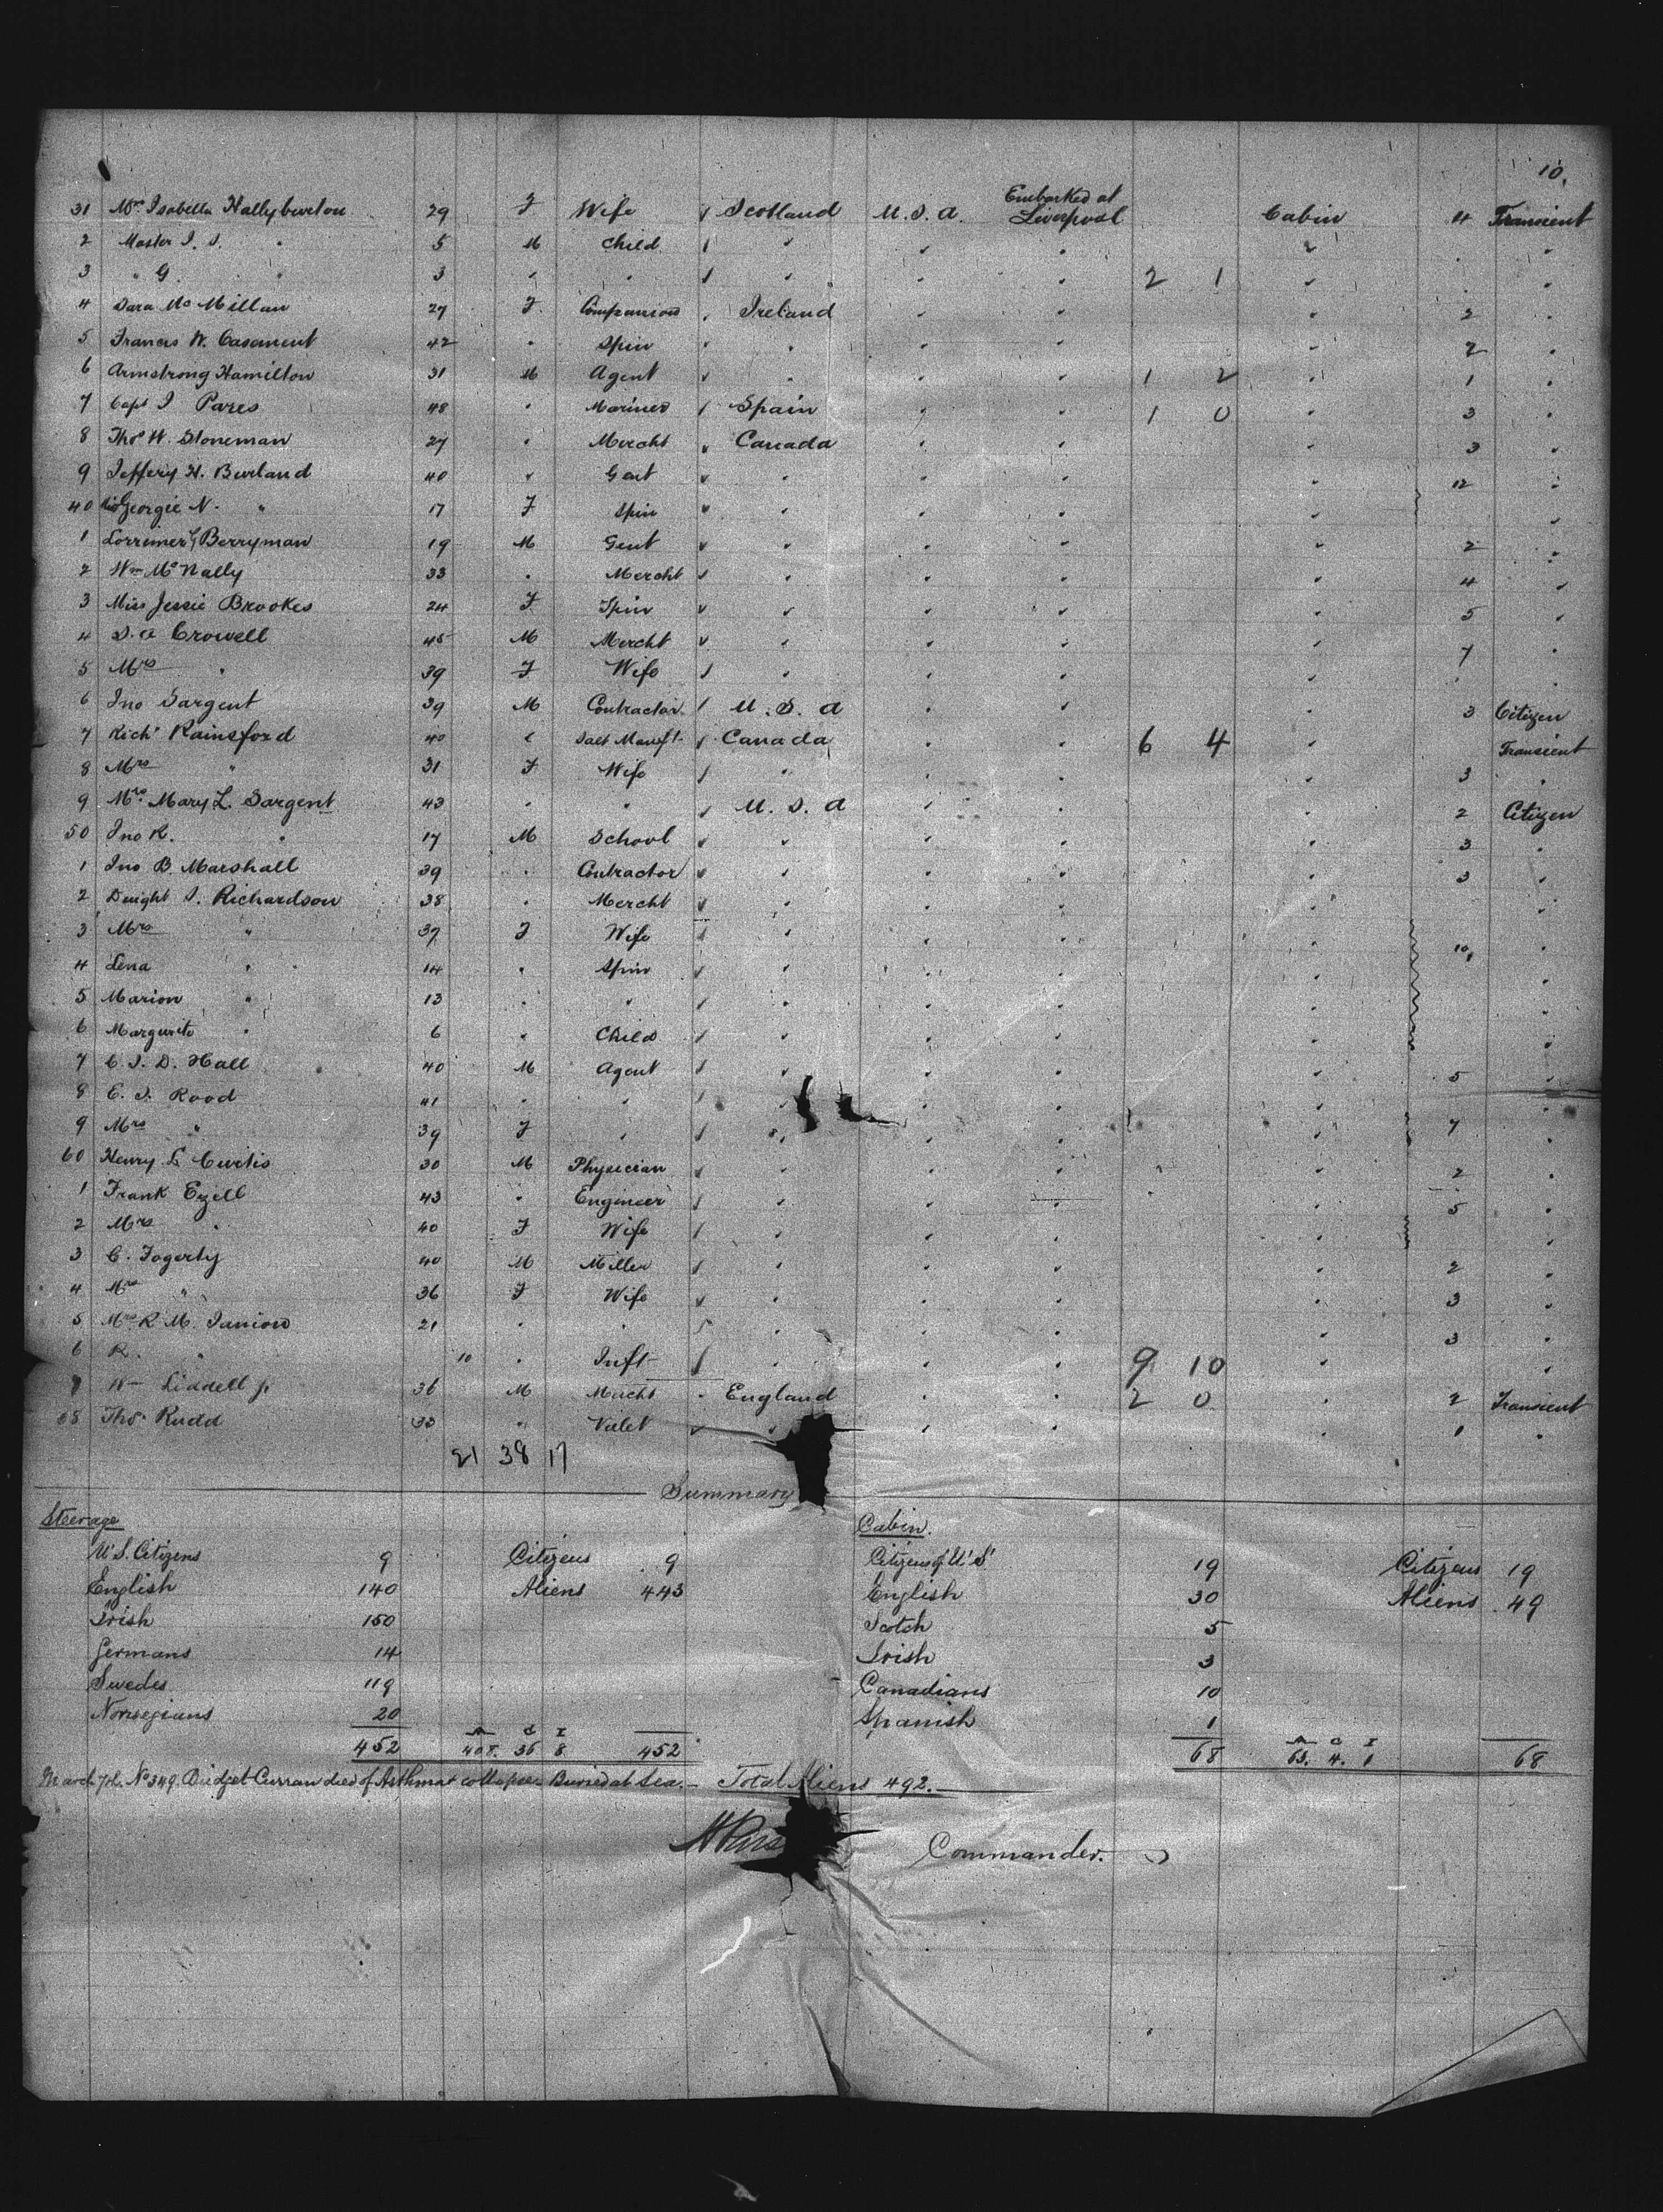 10.
31 Mrs Isabella Hallyburton 29 F Wife Scotland U.S.A. Embarked at Liverpool Cabin 4 Transient
2 Master J. S. " 5 M Child " " " "
3 " G. " 3 " " " " " 2 1 " "
4 Sara McMillan 27 F Companion Ireland " " " 2 "
5 Frances W. Casement 42 " Spin " " " " 2 "
6 Armstrong Hamilton 31 M Agent " " " 1 2 " 1 "
7 Capt J Pares 48 " Mariner Spain " " 1 0 " 3 "
8 Thos W. Stoneman 27 " Mercht Canada " " " 3 "
9 Jeffery H. Burland 40 " Gent " " " " 12 "
40 Miss Georgie N. " 17 F Spin " " " " "
1 Lorrimer G Berryman 19 M Gent " " " " 2 "
2 Wm McNally 33 " Mercht " " " " 4 "
3 Miss Jessie Brookes 24 F Spin " " " " 5 "
4 S. A Crowell 45 M Mercht " " " " 7 "
5 Mrs " 39 F Wife " " " " "
6 Jno Sargent 39 M Contractor U.S.A " " " 3 Citizen
7 Richd Rainsford 40 " Salt Manuft Canada " " 6 4 " Transient
8 Mrs " 31 F Wife " " " " 3 "
9 Mrs Mary L. Sargent 43 " " U.S.A " " " 2 Citizen
50 Jno R. " 17 M School " " " " 3 "
1 Jno B. Marshall 39 " Contractor " " " " 3 "
2 Dwight S. Richardson 38 " Mercht " " " " "
3 Mrs " 37 F Wife " " " " 10 "
4 Lena " 14 " Spin " " " " "
5 Marion " 13 " " " " " " "
6 Margurite " 6 " Child " " " " "
7 C. S. D. Hall 40 M Agent " " " " 5 "
8 E. S. Rood 41 " " " " " " "
9 Mrs " 39 F " " " " " 7 "
60 Henry L Curtis 30 M Physician " " " " 2 "
1 Frank Ezell 43 " Engineer " " " " 5 "
2 Mrs " 40 F Wife " " " " "
3 C. Fogerty 40 M Miller " " " " 2 "
4 Mrs " 36 F Wife " " " " 3 "
5 Mrs R. M. Janion 21 " " " " " " 3 "
6 R. " 10 " Inft " " " 9 10 " "
7 Wm Liddell jr 36 M Mercht England " " 2 0 " 2 Transient
68 Thos Rudd 33 " Valet " " " " 1 "
21 38 17
Summary
Steerage Cabin.
U.S. Citizens 9 Citizens 9 Citizens of U.S. 19 Citizens 19
English 140 Aliens 443 English 30 Aliens 49
Irish 150 Scotch 5
Germans 14 Irish 3
Swedes 119 Canadians 10
Norwegians 20 Spanish 1
A C I A C I
452 408. 36 8 452 68 63. 4. 1 68
March 7th. No 349. Bridget Curran died of Asthma & collapse. Buried at Sea. - Total Aliens 492.
Commander.